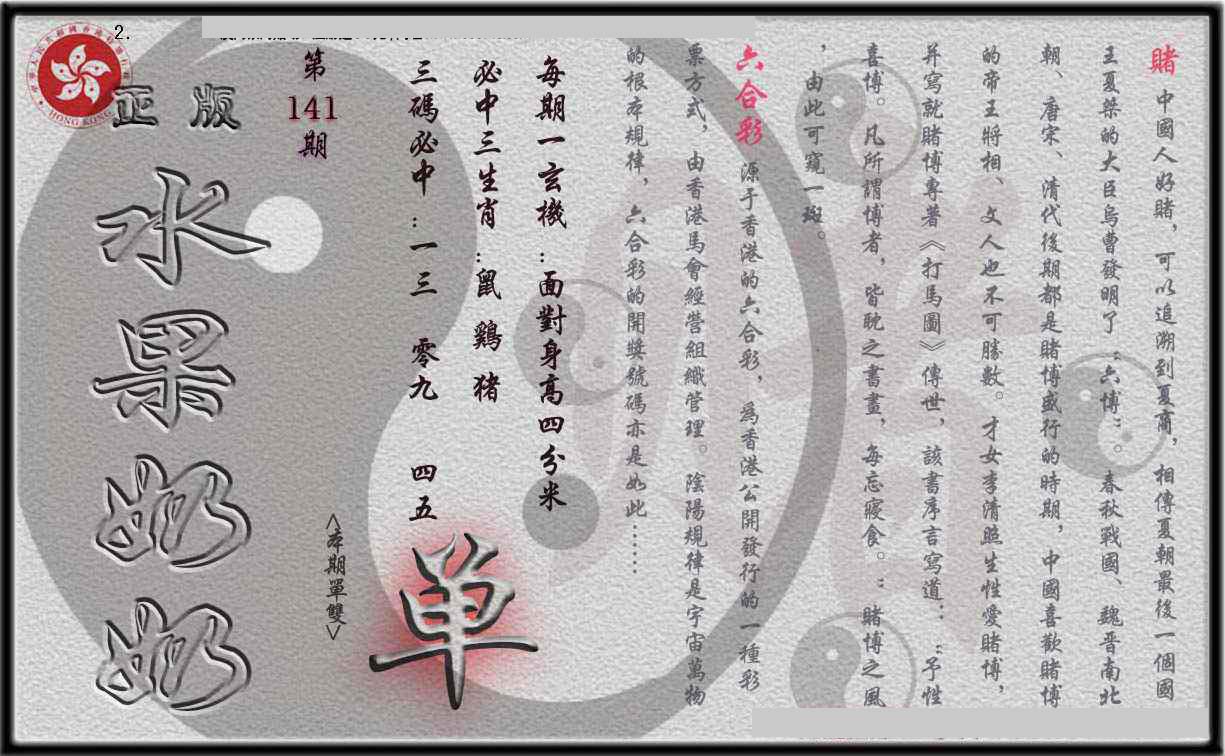 賭 中國人好賭，可以追溯到夏商，相傳夏朝最後一個國
王夏桀的大臣烏曹發明了“六博”。春秋戰國、魏晋南北
朝、唐宋、清代後期都是賭博盛行的時期，中國喜歡賭博
的帝王將相、文人也不可勝數。才女李清照生性愛賭博，
并寫就賭博專著《打馬圖》傳世，該書序言寫道：“予性
喜博。凡所謂博者，皆耽之書畫，每忘寢食。”賭博之風
，由此可窺一斑。
六合彩 源于香港的六合彩，爲香港公開發行的一種彩
票方式，由香港馬會經營組織管理。陰陽規律是宇宙萬物
的根本規律，六合彩的開獎號碼亦是如此……
每期一玄機：面對身高四分米
必中三生肖：鼠 鷄 猪
三碼必中：一三 零九 四五
单
<本期單雙>
第
141
期
正版
水果奶奶
HONG KONG
2.